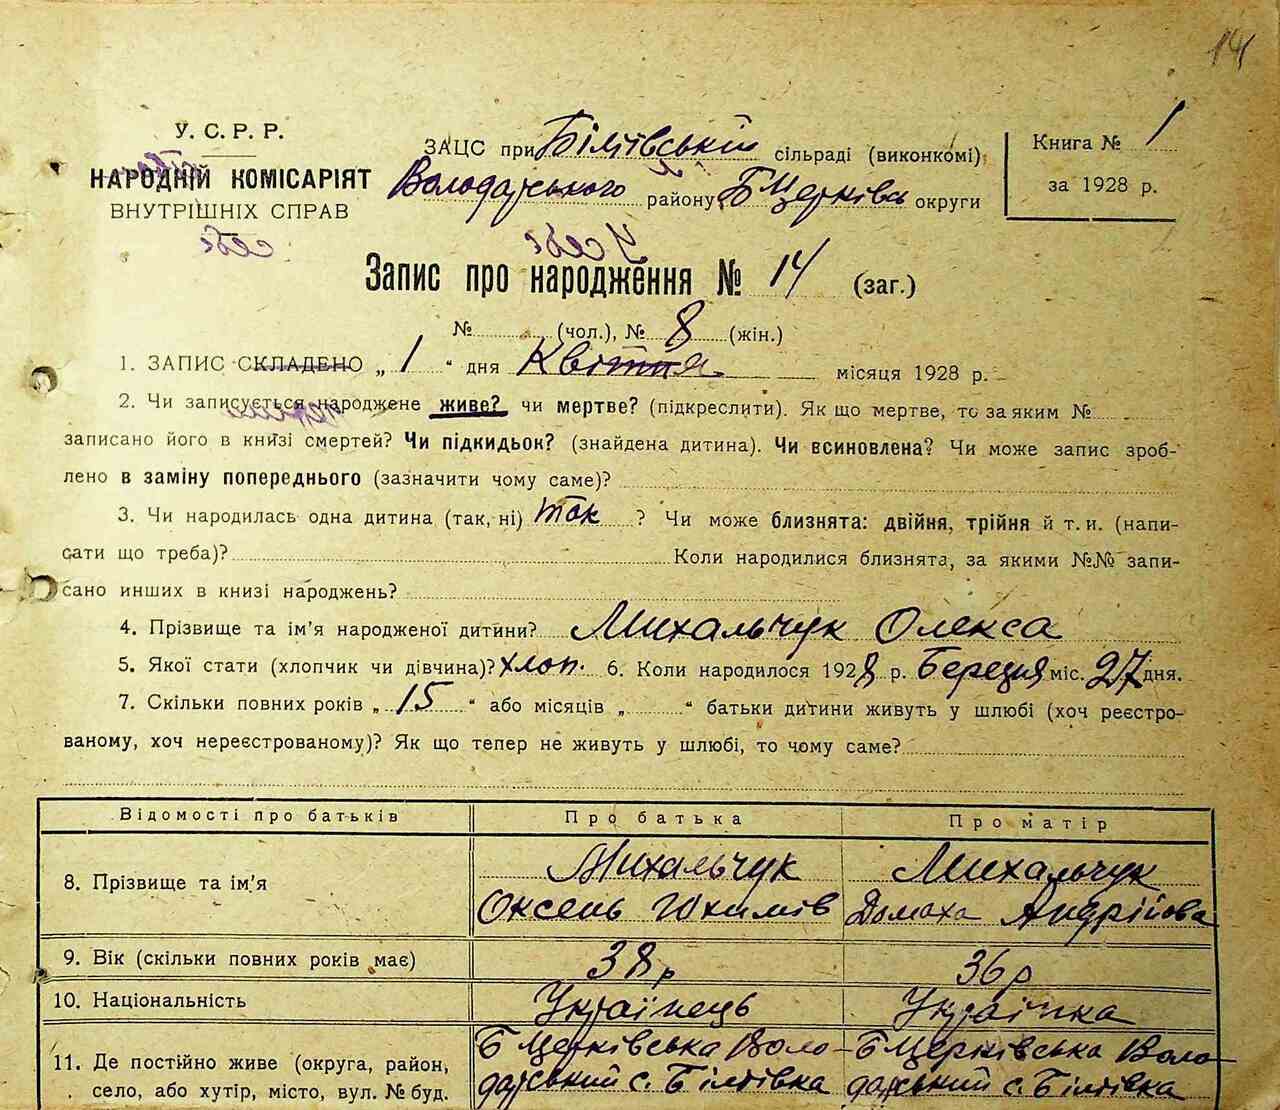 14
У. С. Р. Р.
НАРОДНІЙ КОМІСАРІЯТ
ВНУТРІШНІХ СПРАВ
ЗАЦС при Біліївський сільраді (виконкомі)
Володарського району Б Церківсь округи
Книга № 1
за 1928 р.
Запис про народження № 14 (заг.)
№ (чол.), № 8 (жін.)
1. ЗАПИС СКЛАДЕНО „ 1 “ дня Квітня місяця 1928 р.
2. Чи записується народжене живе? чи мертве? (підкреслити). Як що мертве, то за яким №
записано його в книзі смертей? Чи підкидьок? (знайдена дитина). Чи всиновлена? Чи може запис зроб-
лено в заміну попереднього (зазначити чому саме)?
3. Чи народилась одна дитина (так, ні) так ? Чи може близнята: двійня, трійня й т. и. (напи-
сати що треба)? Коли народилися близнята, за якими №№ запи-
сано инших в книзі народжень?
4. Прізвище та ім’я народженої дитини? Михальчук Олекса
5. Якої стати (хлопчик чи дівчина)? хлоп. 6. Коли народилося 1928 р. Березня міс. 27 дня.
7. Скільки повних років „ 15 “ або місяців „ “ батьки дитини живуть у шлюбі (хоч реєстро-
ваному, хоч нереєстрованому)? Як що тепер не живуть у шлюбі, то чому саме?
Відомості про батьків Про батька Про матір
8. Прізвище та ім’я Михальчук Михальчук
Оксень Юхимів Домаха Андрійова
9. Вік (скільки повних років має) 38 р 36 р
10. Національність Українець Українка
11. Де постійно живе (округа, район, Б Церківська Воло- Б Церківська Воло-
село, або хутір, місто, вул. № буд. дарський с. Біліївка дарський с. Біліївка